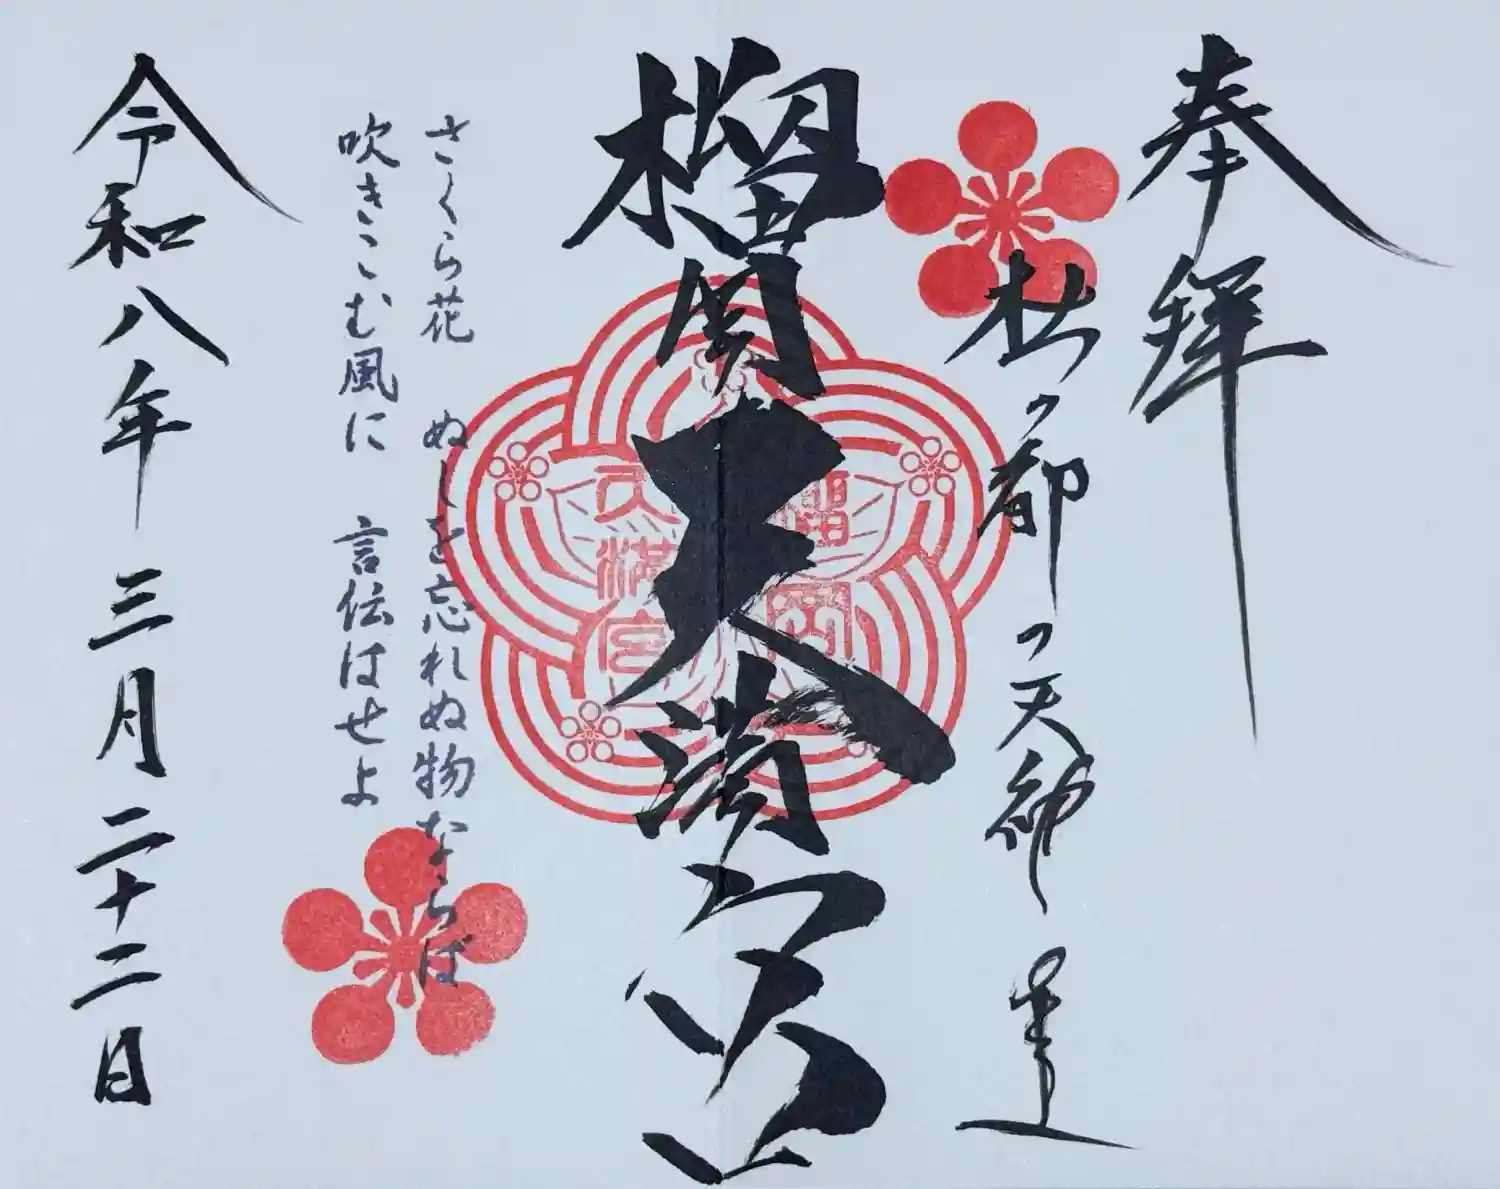 奉拝
杜の都の天神
榴岡天満宮
榴岡
天満宮
さくら花 ぬしを忘れぬ物ならば
吹きこむ風に 言伝はせよ
令和八年 三月 二十二日